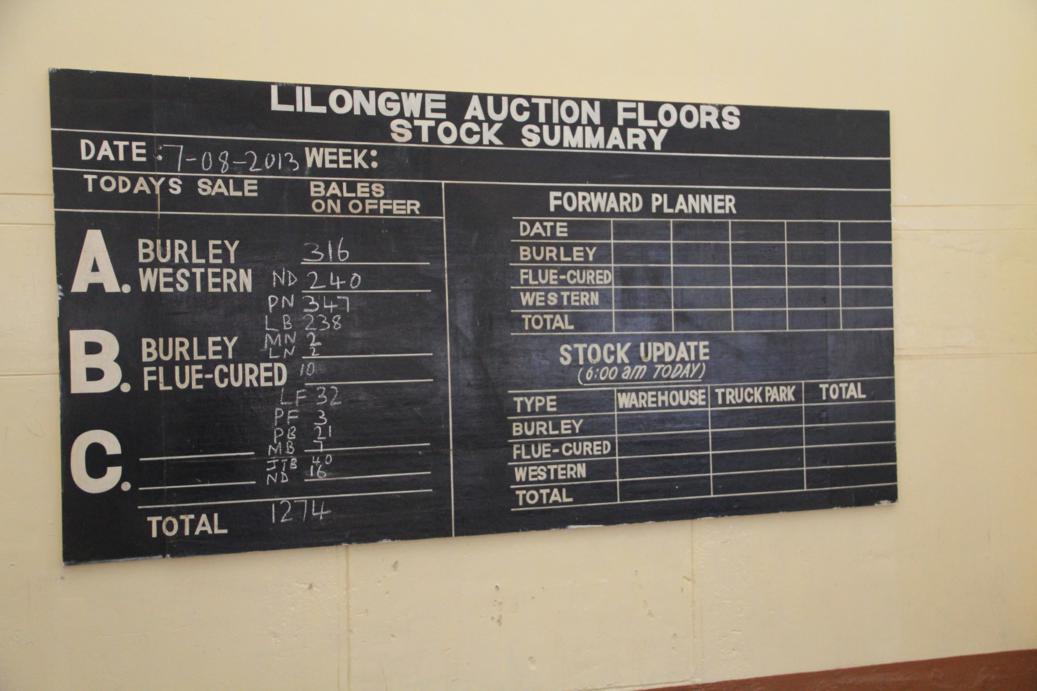 LILONGWE AUCTION FLOORS
STOCK SUMMARY
DATE: 7-08-2013 WEEK:
TODAYS SALE BALES ON OFFER
A. BURLEY 316
WESTERN ND 240
PN 347
LB 238
B. BURLEY MN 2
LN 2
FLUE-CURED 10
LF 32
PF 3
PB 21
C. MB 7
JTB 40
ND 16
TOTAL 1274
FORWARD PLANNER
DATE
BURLEY
FLUE-CURED
WESTERN
TOTAL
STOCK UPDATE
(6:00 am TODAY)
TYPE WAREHOUSE TRUCK PARK TOTAL
BURLEY
FLUE-CURED
WESTERN
TOTAL